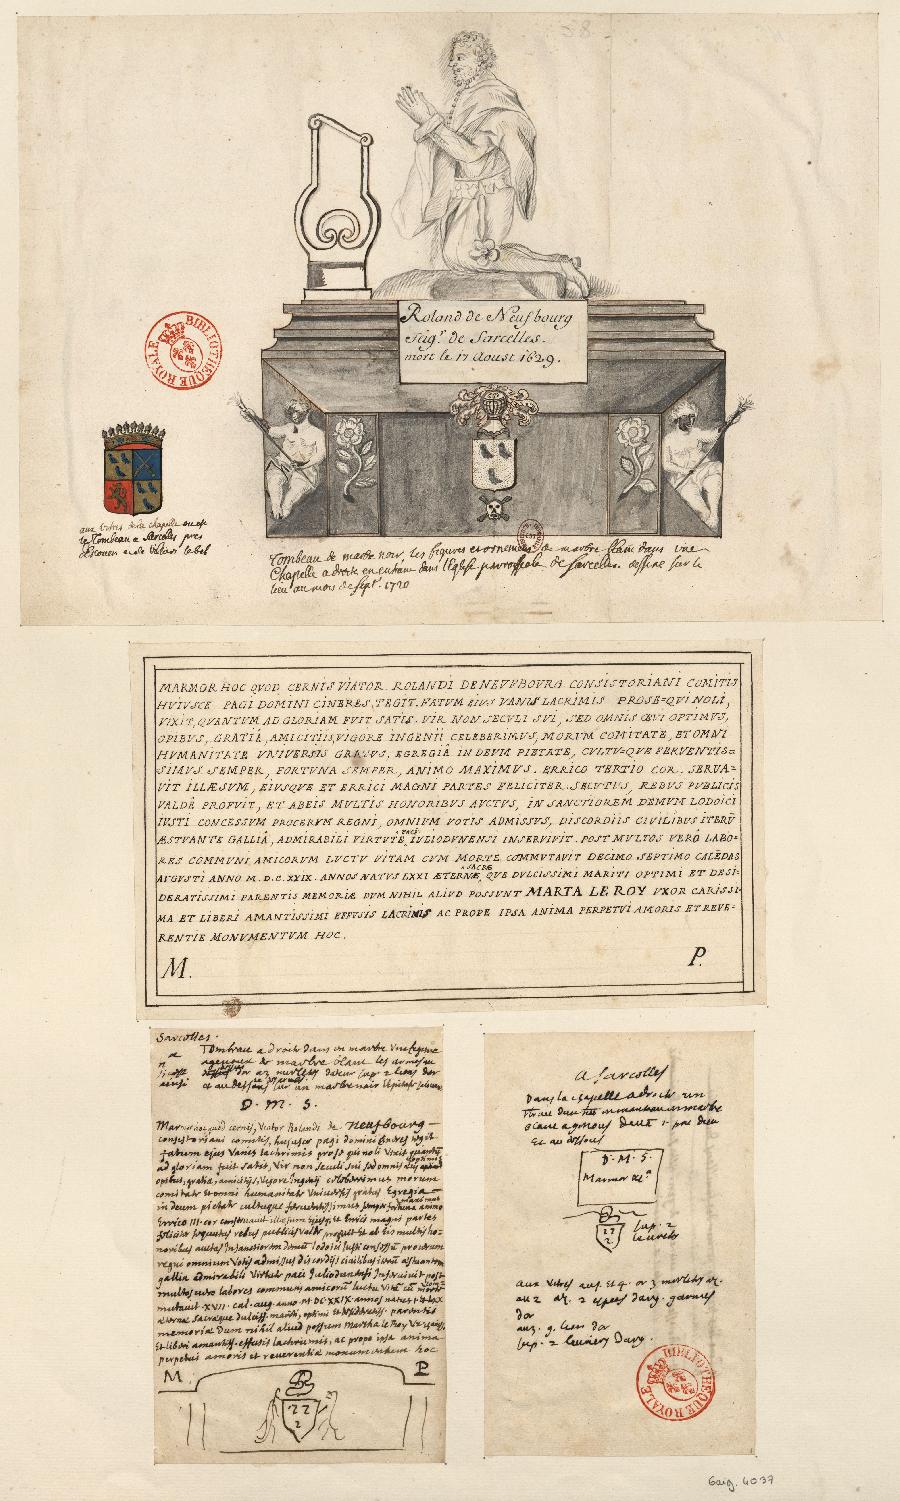 58
Roland de Neufbourg
Seigr. de Sarcelles.
mort le 17 Aoust 1629.
BIBLIOTHEQUE ROYALE
aux vitres de la chapelle ou est
le Tombeau a Sarcelles pres
Escouen
Tombeau de marbre noir, les figures et ornemens de marbre blanc dans une
Chapelle a droite en entrant dans l'Eglise parroissiale de Sarcelles. dessiné sur le
lieu au mois de Sept. 1720
MARMOR HOC QVOD CERNIS VIATOR ROLANDI DE NEVFBOVRG CONSISTORIANI COMITIS
HVIVSCE PAGI DOMINI CINERES TEGIT. FATVM EIVS VANIS LACRIMIS PROSE=QVI NOLI,
VIXIT, QVANTVM AD GLORIAM FVIT SATIS. VIR NON SECVLI SVI, SED OMNIS ŒVI OPTIMVS,
OPIBVS, GRATIÂ, AMICITIIS, VIGORE INGENII CELEBERIMVS, MORVM COMITATE, ET OMNI
HVMANITATE VNIVERSIS GRATVS, EGREGIÂ IN DEVM PIETATE, CVLTV=QVE FERVENTIS=
SIMVS SEMPER, FORTVNA SEMPER, ANIMO MAXIMVS. ERRICO TERTIO COR. SERVA=
VIT ILLÆSVM, EIVSQVE ET ERRICI MAGNI PARTES FELICITER SECVTVS, REBVS PVBLICIS
VALDÈ PROFVIT, ET AB EIS MVLTIS HONORIBVS AVCTVS, IN SANCTIOREM DEMVM LODOICI
IVSTI CONCESSVM PROCERVM REGNI, OMNIVM VOTIS ADMISSVS, DISCORDIIS CIVILIBVS ITERŨ
ÆSTVANTE GALLIÂ, ADMIRABILI VIRTVTE, PACI IVLIODVNENSI INSERVIVIT. POST MVLTOS VERÒ LABO=
RES COMMVNI AMICORVM LVCTV VITAM CVM MORTE COMMVTAVIT DECIMO SEPTIMO CALẼDAS
AVGVSTI ANNO M.D.C.XXIX. ANNOS NATVS LXXI ÆTERNÆ, SACRÆ QVE DVLCISSIMI MARITI OPTIMI ET DESI=
DERATISSIMI PARENTIS MEMORIÆ DVM NIHIL ALIVD POSSVNT MARTA LE ROY VXOR CARISSI=
MA ET LIBERI AMANTISSIMI EFFVSIS LACRIMIS AC PROPE IPSA ANIMA PERPETVI AMORIS ET REVE=
RENTIE MONVMENTVM HOC.
M. P.
Sarcelles.
Tombeau a droite dans un marbre une figure
agenoux de marbre blanc les armes
D. M. S.
Marmor hoc quod cernis, Viator Rolandi de Neufbourg
consistoriani comitis, hujusce pagi domini cineres tegit
fatum ejus vanis lachrimis prosequi noli vixit quantum
ad gloriam fuit satis, vir non seculi sui sed omnis ævi optimus
opibus, gratia, amicitijs, vigore ingenij celeberimus morum
comitate et omni humanitate universis gratus Egregia
in deum pietate cultuque ferventissimus semper fortuna animo maximus
Errico III. cor conservavit illæsum ejusq. et Errici magni partes
feliciter sequutus rebus publicis valde profuit et ab eis multis ho=
noribus auctus in sanctiorem demum lodoici justi consessum procerum
regni omnium votis admissus discordijs civilibus iterum æstuante
gallia admirabili virtute paci Juliodunensi Inservivit post
multos vero labores communi amicorum luctu vitã cũ morte com=
mutavit XVII. cal. aug. anno M DC XXIX annos natus LXXI
æternæ sacræque dulciss. mariti, optimi et desideratiss. parentis
memoriæ Dum nihil aliud possunt Martha le Roy
et liberi amantiss. effusis lachrimis, ac prope ipsa anima
perpetui amoris et reverentiæ monumentum hoc
M. P.
a Sarcelles
Dans la chapelle a droite un
Et au dessous
D. M. S.
Marmor &c.
sup. 2
levrets
aux vitres
au 2 az. 2 espees d'arg. garnies
d'or
au 3. g. lion d'or
sup. 2 levriers d'arg.
BIBLIOTHEQUE ROYALE
Gaig. 4037